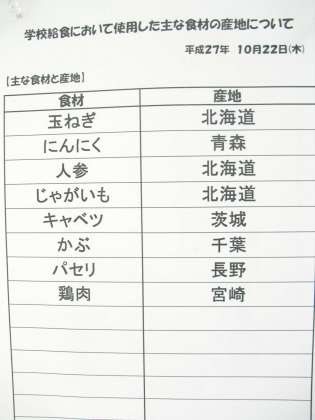 学校給食において使用した主な食材の産地について
平成27年 10月22日(木)
【主な食材と産地】
食材 産地
玉ねぎ 北海道
にんにく 青森
人参 北海道
じゃがいも 北海道
キャベツ 茨城
かぶ 千葉
パセリ 長野
鶏肉 宮崎